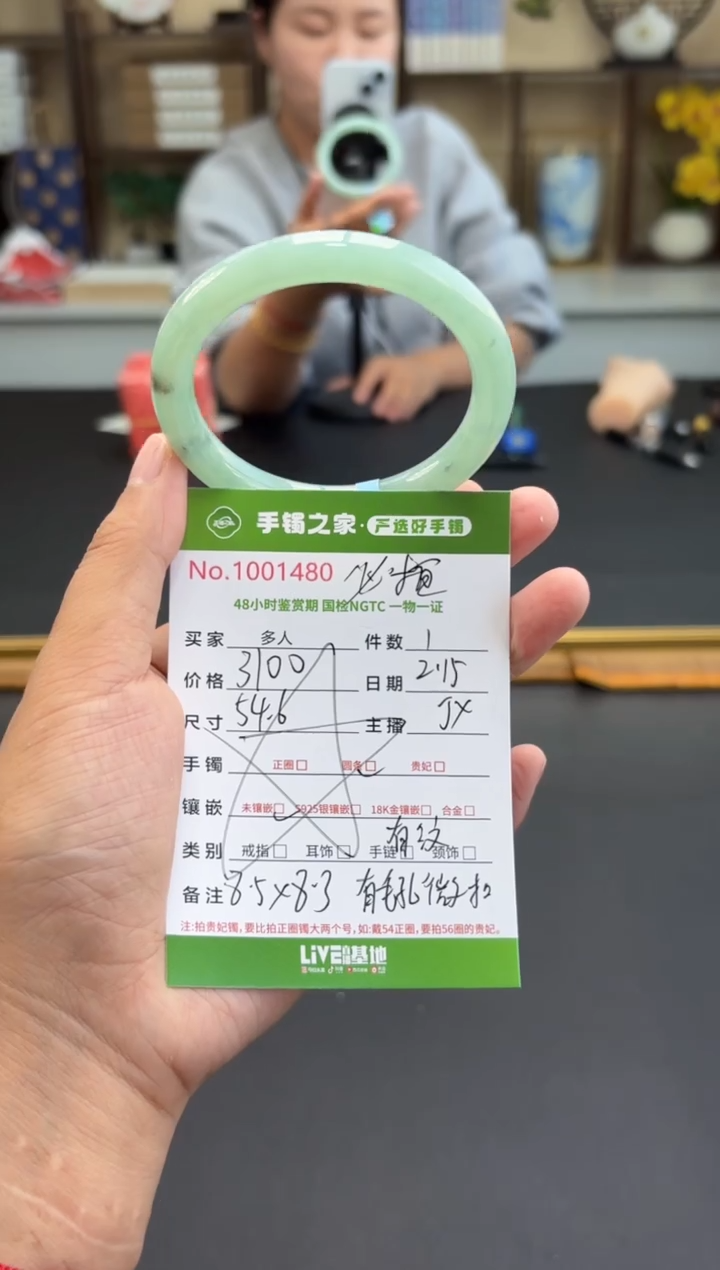 手镯之家·严选好手镯
No.1001480
48小时鉴赏期 国检NGTC 一物一证
买家 多人 件数 1
价格 3100 日期 2.15
尺寸 54.6 主播 JX
手镯 正圈□ 圆条□ 贵妃□
镶嵌 未镶嵌□ S925银镶嵌□ 18K金镶嵌□ 合金□
有纹
类别 戒指□ 耳饰□ 手链□ 颈饰□
备注 8.5X8.3 有毛孔微
注:拍贵妃镯,要比拍正圈镯大两个号,如:戴54正圈,要拍56圈的贵妃。
LiVE 基地